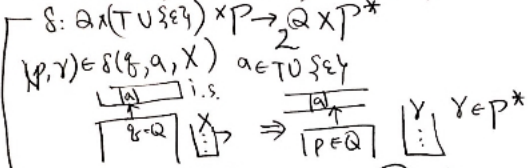 δ: Q×(T∪{ε})×P→2^{Q×P*}
(p,γ)∈δ(q,a,X) a∈T∪{ε}
a i.s. a
q∈Q X ⇒ p∈Q γ γ∈P*